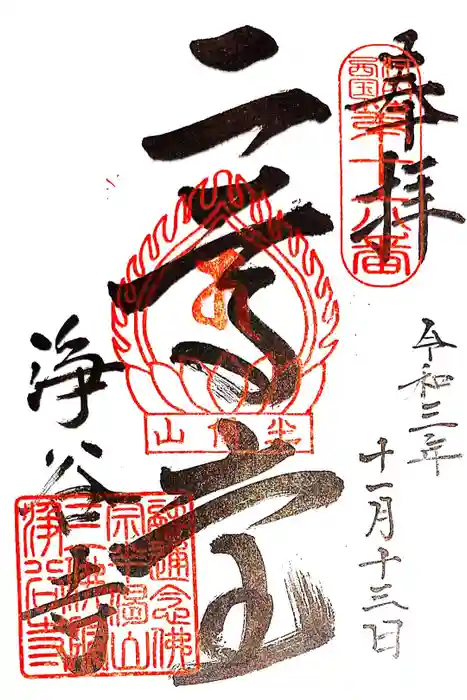 奉拝
西国第十八番
令和三年
十一月十三日
堂
半偈山
浄谷寺
融通念佛
宗半偈山
浄谷寺